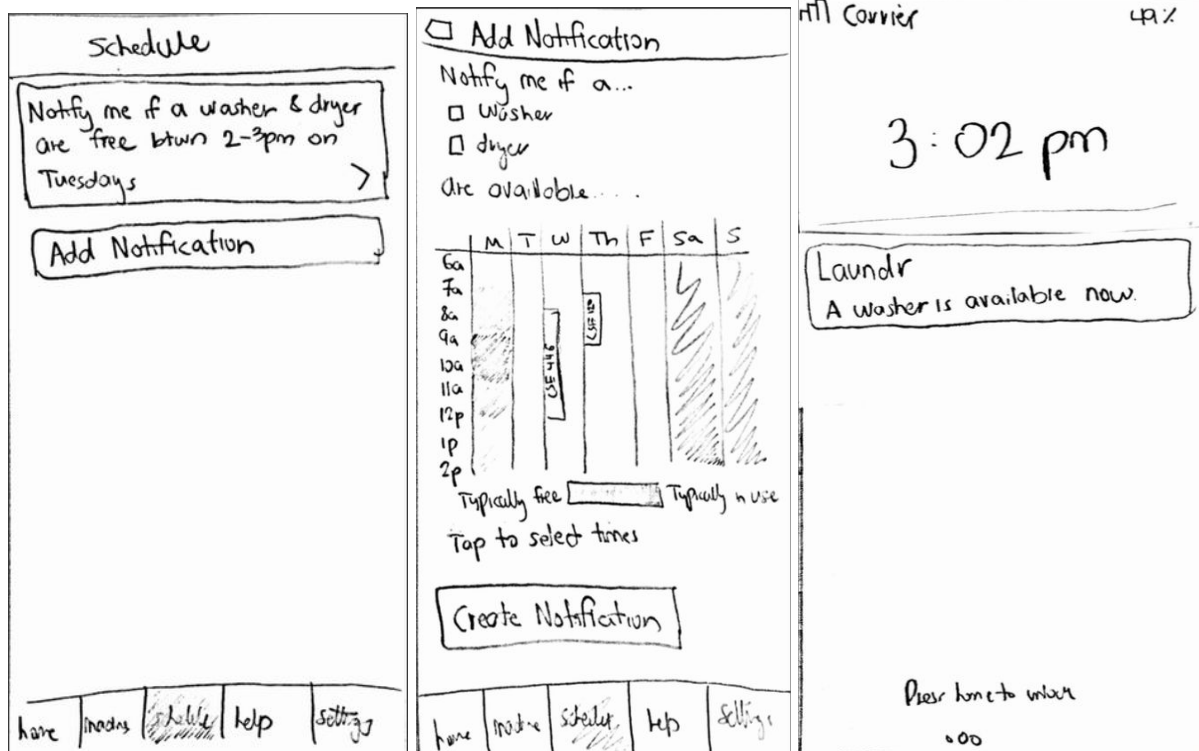 Schedule
Notify me if a washer & dryer
are free btwn 2-3pm on
Tuesdays >
Add Notification
home
schedule
help
settings
Add Notification
Notify me if a...
washer
dryer
are available....
M T W Th F Sa S
6a
7a
8a
9a
10a
11a
12p
1p
2p
CSE 446
CSE
Typically free
Typically in use
Tap to select times
Create Notification
home
help
settings
Carrier
49%
3:02 pm
Laundr
A washer is available now.
Press home to unlock